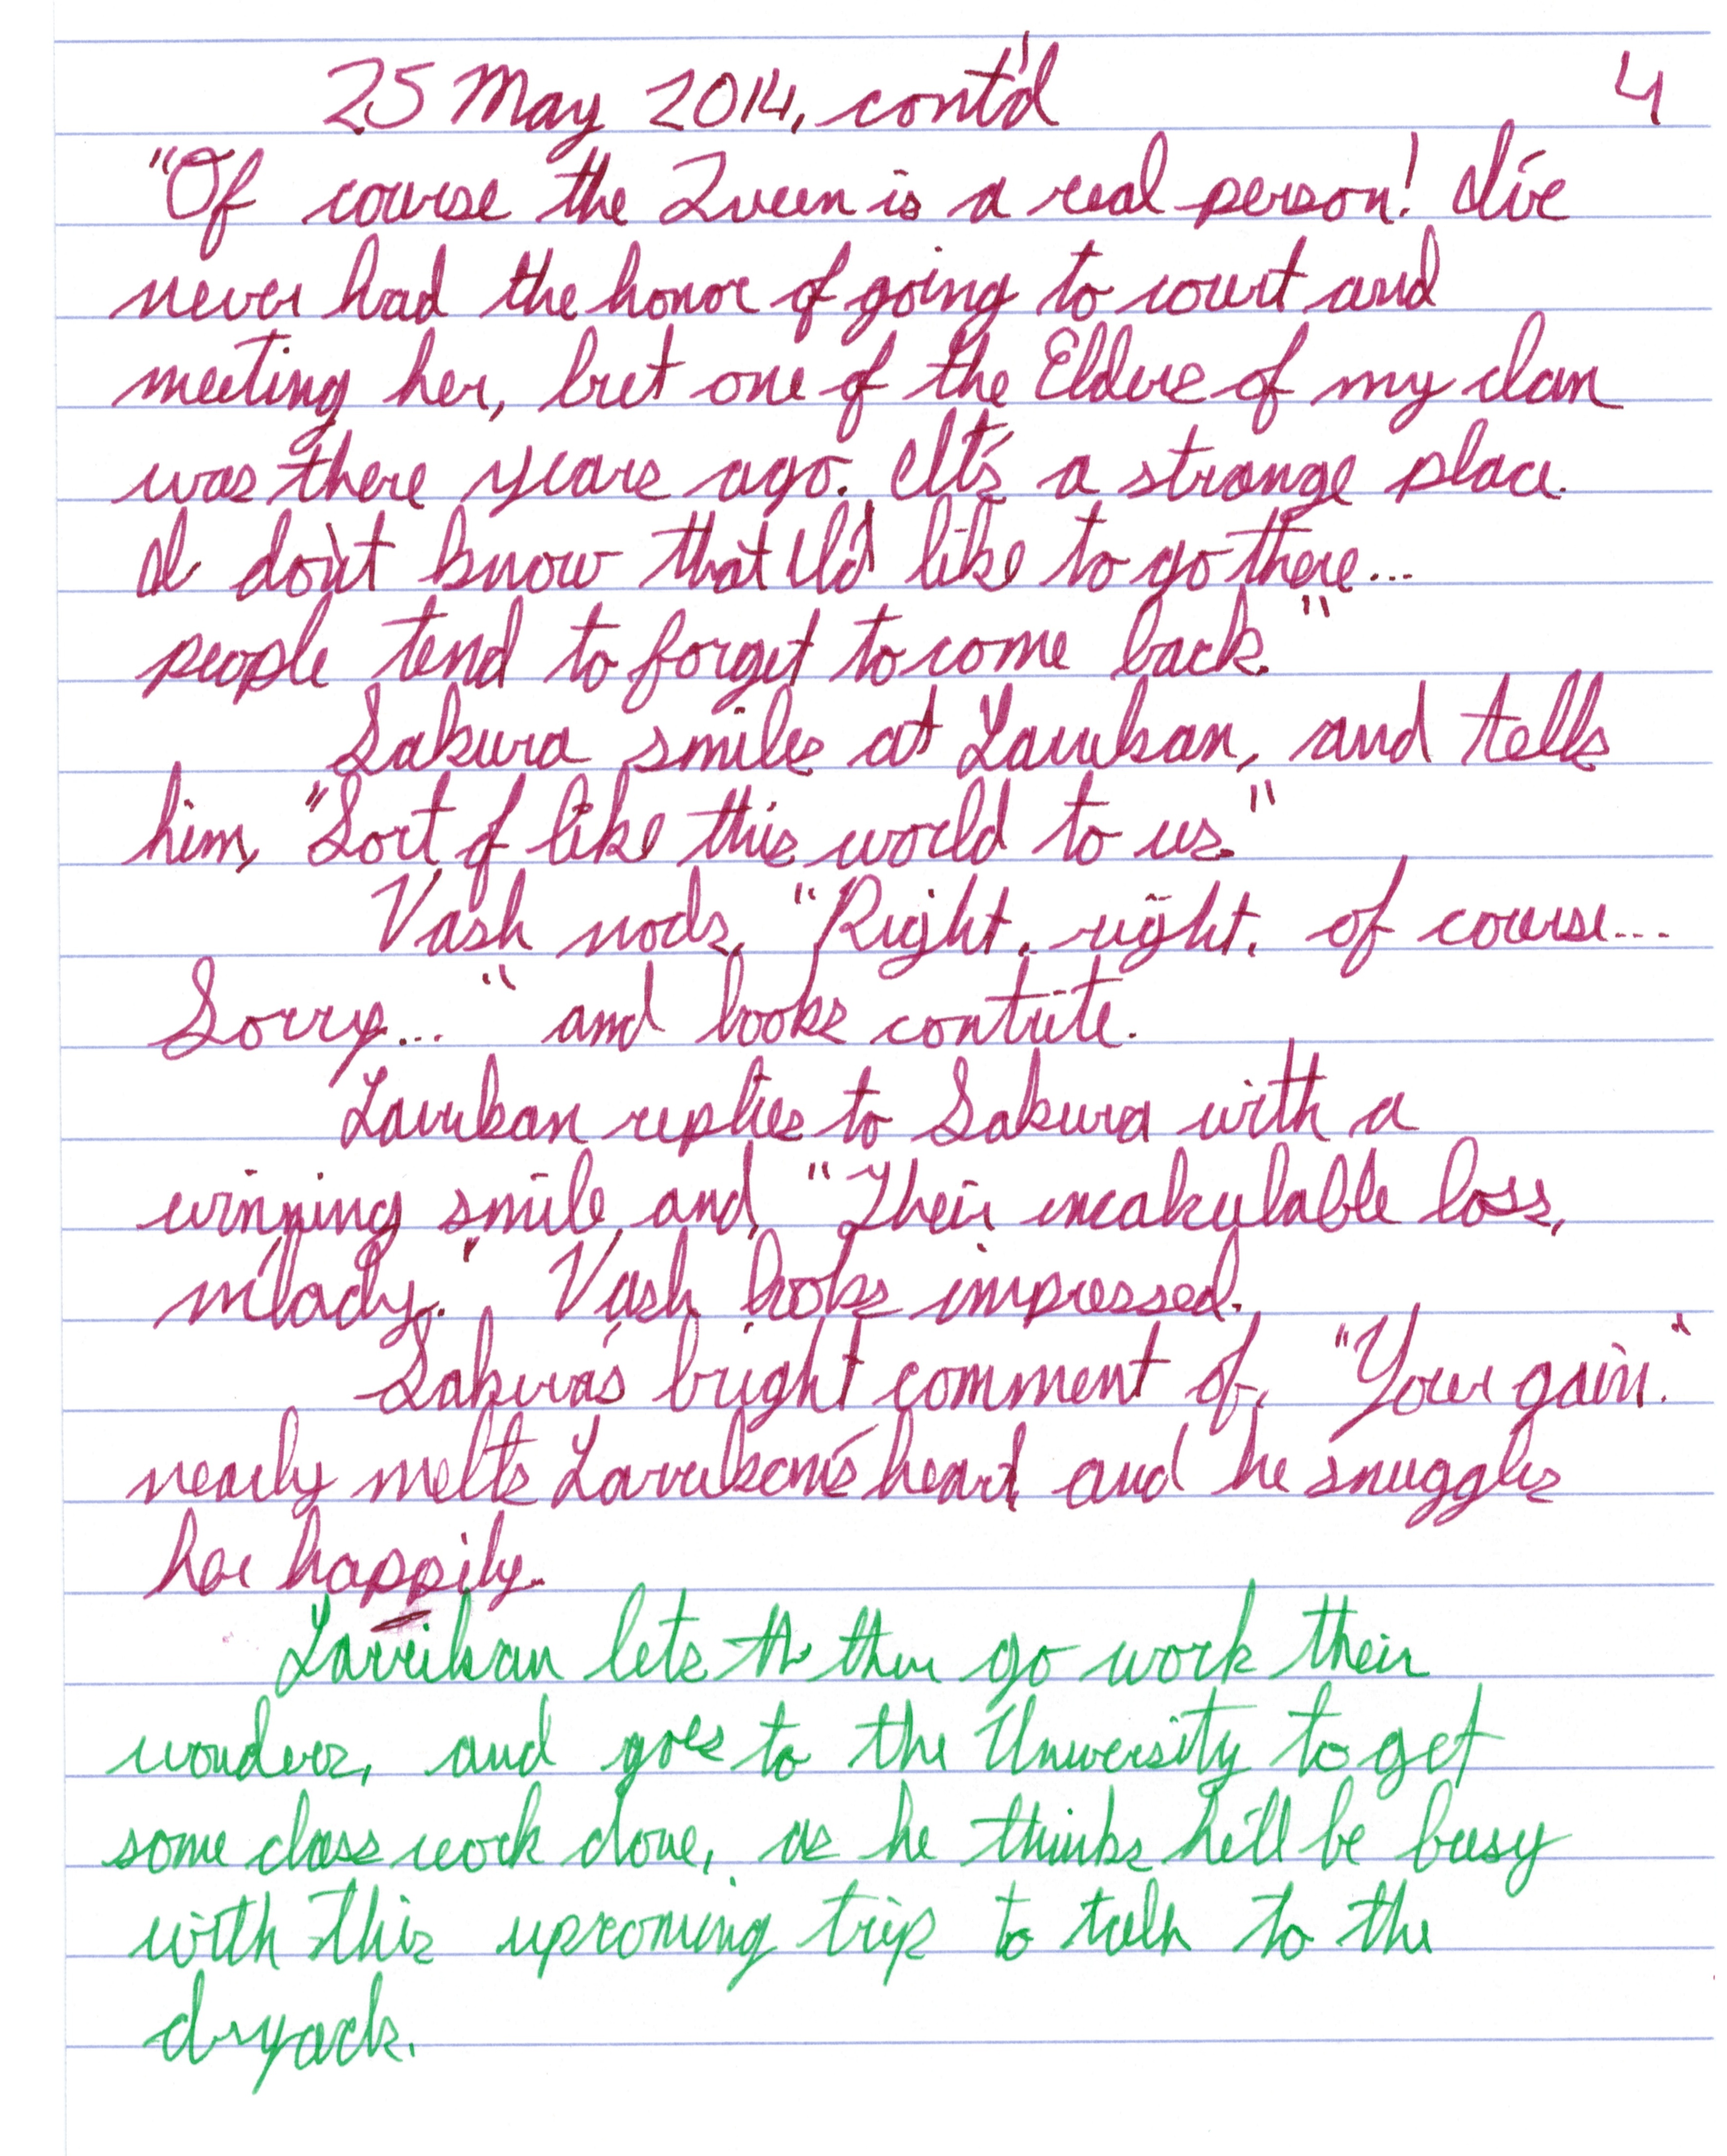 25 May 2014, cont'd 4
"Of course the Queen is a real person! I've
never had the honor of going to court and
meeting her, but one of the Elders of my clan
was there years ago. It's a strange place.
I don't know that I'd like to go there...
people tend to forget to come back."
Sakura smiles at Lavrikan, and tells
him, "Sort of like this world to us."
Vash nods, "Right, right, of course...
Sorry..." and looks contrite.
Lavrikan replies to Sakura with a
winning smile and, "Their incalculable loss,
m'lady." Vash looks impressed.
Sakura's bright comment of, "Your gain."
nearly melts Lavrikan's heart, and he snuggles
her happily.
Lavrikan lets th them go work their
wonders, and goes to the University to get
some class work done, as he thinks he'll be busy
with this upcoming trip to talk to the